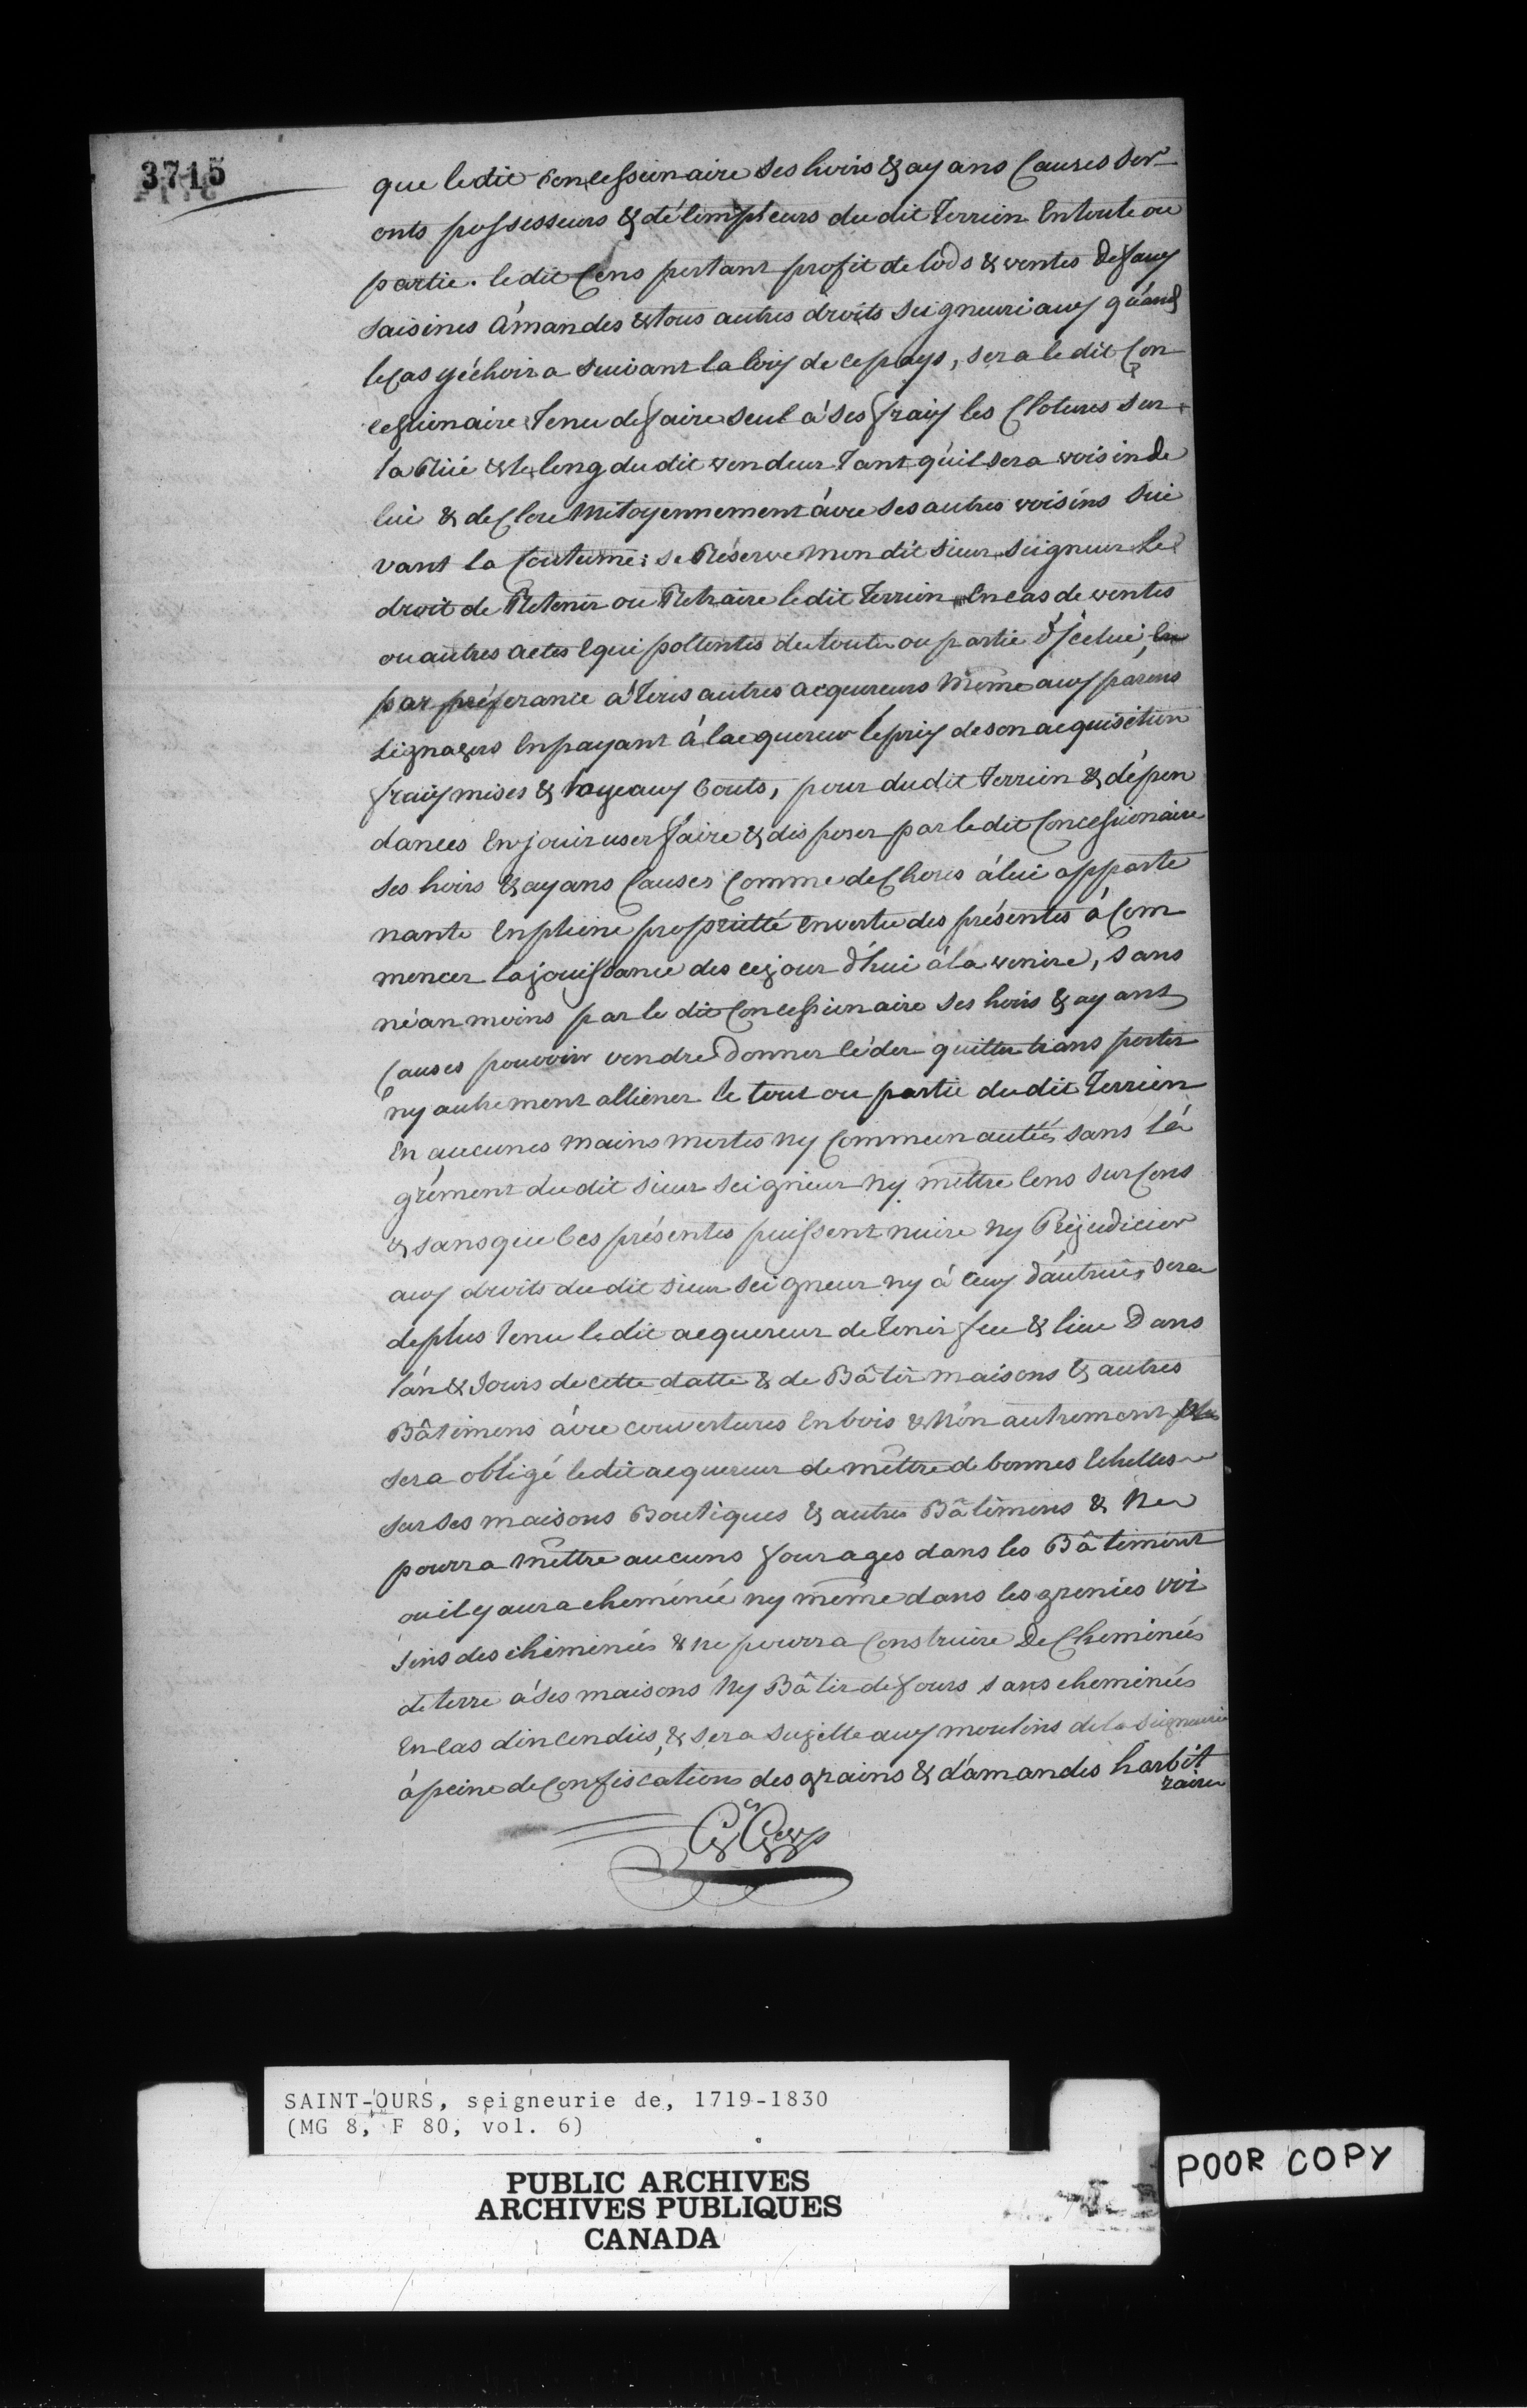 3715
que ledit Concessionaire ses hoirs & ayans Causes ser
onts possesseurs & détempteurs du dit Terrien En toute ou
partie. ledit Cens portant profit de lods & ventes Defaux
saisines Amandes & tous autres droits seigneuriaux quánd
le Cas y échoira suivant la loix de ce pays, sera le dit Con
cessionaire Tenu de faire seul à ses fraix les Clotures sur
la Rüe & le long du dit vendeur Tant quil sera voisin de
lui & de Clore Mitoyennement ávec ses autres voisins sui
vant la Coutume; se Réserve mon dit sieur seigneur Le
droit de Retenir ou Retraire ledit Terrien En cas de ventes
ou autres actes Equipoltentes du toute ou partie d'Jcelui,
par préferance à Tous autres acquereurs Même aux párens
Lignagers En payant à lacquereur le prix de son acquisition
fraix mises & loyeaux Couts, pour du dit Terrien & dépen
dances En jouir user faire & disposer par ledit Concessionaire
ses hoirs & ayans Causes Comme de Choses à lui apparte
nante En pleine propriétté En vertu des présentes à Com
mencer la jouissance des ce jour d'hui à la venire, sans
néanmoins par le dit Concessionaire ses hoirs & ayant
Causes pouvoir vendre Donner Céder quitter transporter
ny autrement alliener le tout ou partie du dit Terrien
En aucunes mains mortes ny Communautés sans lá
grément du dit sieur seigneur ny mettre Cens sur Cens
& sans que les présentes puissent nuire ny Préjudicier
aux droits du dit sieur seigneur ny à Ceux d'áutrui, sera
de plus Tenu le dit acquereur de Tenir feu & lieu Dans
lán & Jours de cette datte & de Bâtir maisons & autres
Bâtimens ávec couvertures En bois & Non autrement
sera obligé le dit acquereur de mettre de bonnes Echelles
sur ses maisons Boutiques & autres Bâtimens & Ne
pourra Mettre aucuns fourages dans les Bâtiment
ou il y aura cheminée ny même dans les greniés voi
sins des cheminées & ne pourra Construire De Cheminées
de terre à ses maisons Ny Bâtir de fours sans cheminées
En Cas d'incendies, & sera sujette aux moulins de la seigneurie
à peine de Confiscations des grains & d'ámandes harbit
raire
SAINT-OURS, seigneurie de, 1719-1830
(MG 8, F 80, vol. 6)
PUBLIC ARCHIVES
ARCHIVES PUBLIQUES
CANADA
POOR COPY